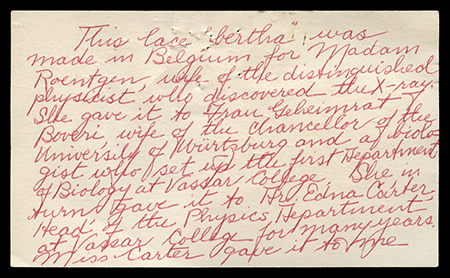 This lace "bertha" was
made in Belgium for Madam
Roentgen, wife of the distinguished
physicist, who discovered the X-ray.
She gave it to Frau Geheimrat T.
Boveri, wife of the Chancellor of the
University of Wurtzburg and a biolo-
gist who set up the first Department
of Biology at Vassar College. She in
turn gave it to Dr. Edna Carter,
Head of the Physics Department
at Vassar College for many years.
Miss Carter gave it to me